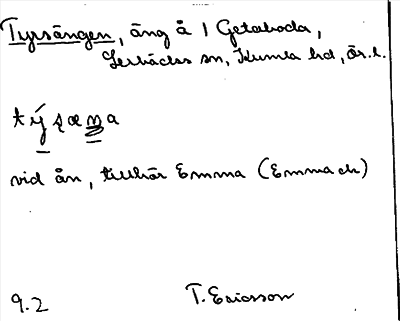 Tyrsängen, äng å 1 Getaboda,
Lerbäcks sn, Kumla hd, Ör. l.
vid ån, tillhör Emma (Emma ch)
9.2 T. Ericsson